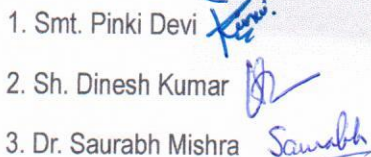 1. Smt. Pinki Devi
2. Sh. Dinesh Kumar
3. Dr. Saurabh Mishra Saurabh